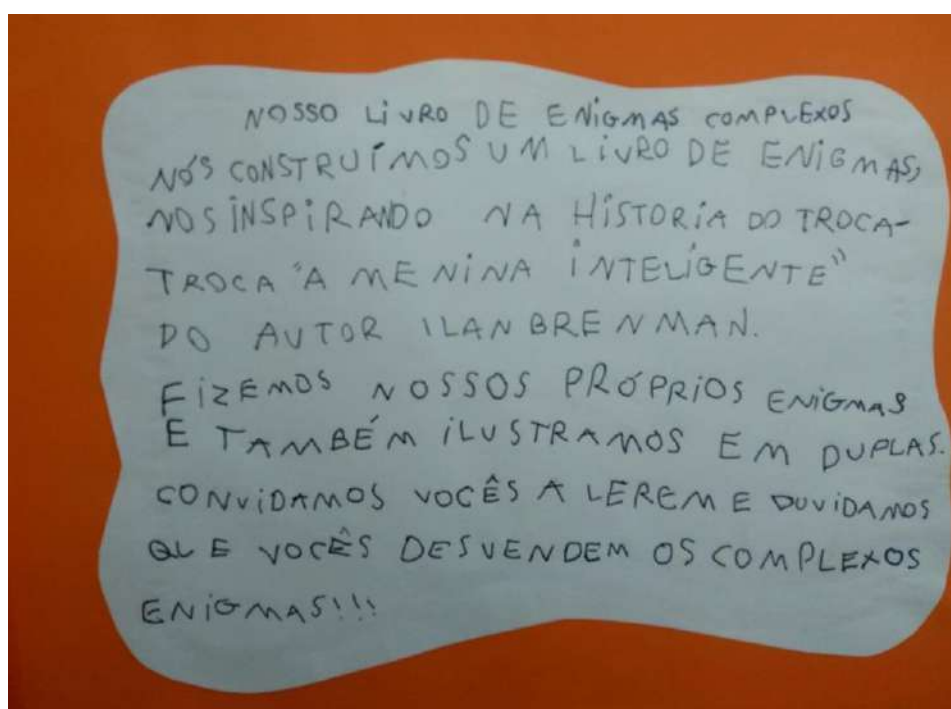 NOSSO LiVRO DE ENiGMAS COMPLEXOS
NÓS CONSTRUÍMOS UM LiVRO DE ENiGMAS,
NOS iNSPiRANDO NA HiSTORiA DO TROCA-
TROCA "A MENiNA iNTELiGENTE"
DO AUTOR ILAN BRENMAN.
FiZEMOS NOSSOS PRÓPRiOS ENiGMAS
E TAMBÉM iLUSTRAMOS EM DUPLAS.
CONViDAMOS VOCÊS A LEREM E DUViDAMOS
QUE VOCÊS DESVENDEM OS COMPLEXOS
ENiGMAS!!!